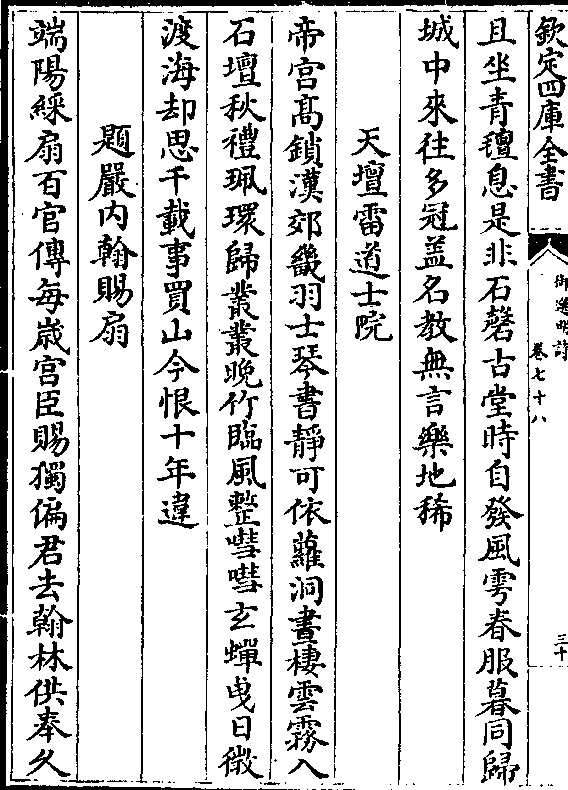 欽定四庫全書
御選明詩
卷七十八
三十
且坐青氊息是非石磬古堂時自發風雩春服暮同歸
城中來往多冠盖名教無言樂地稀
天壇雷道士院
帝宫髙鎖漢郊畿羽士琴書靜可依蘿洞晝棲雲霧入
石壇秋禮珮環歸叢叢晚竹臨風整嘒嘒玄蟬曵日微
渡海却思千載事買山今恨十年違
題嚴内翰賜扇
端陽綵扇百官傳每歲宫臣賜獨偏君去翰林供奉久